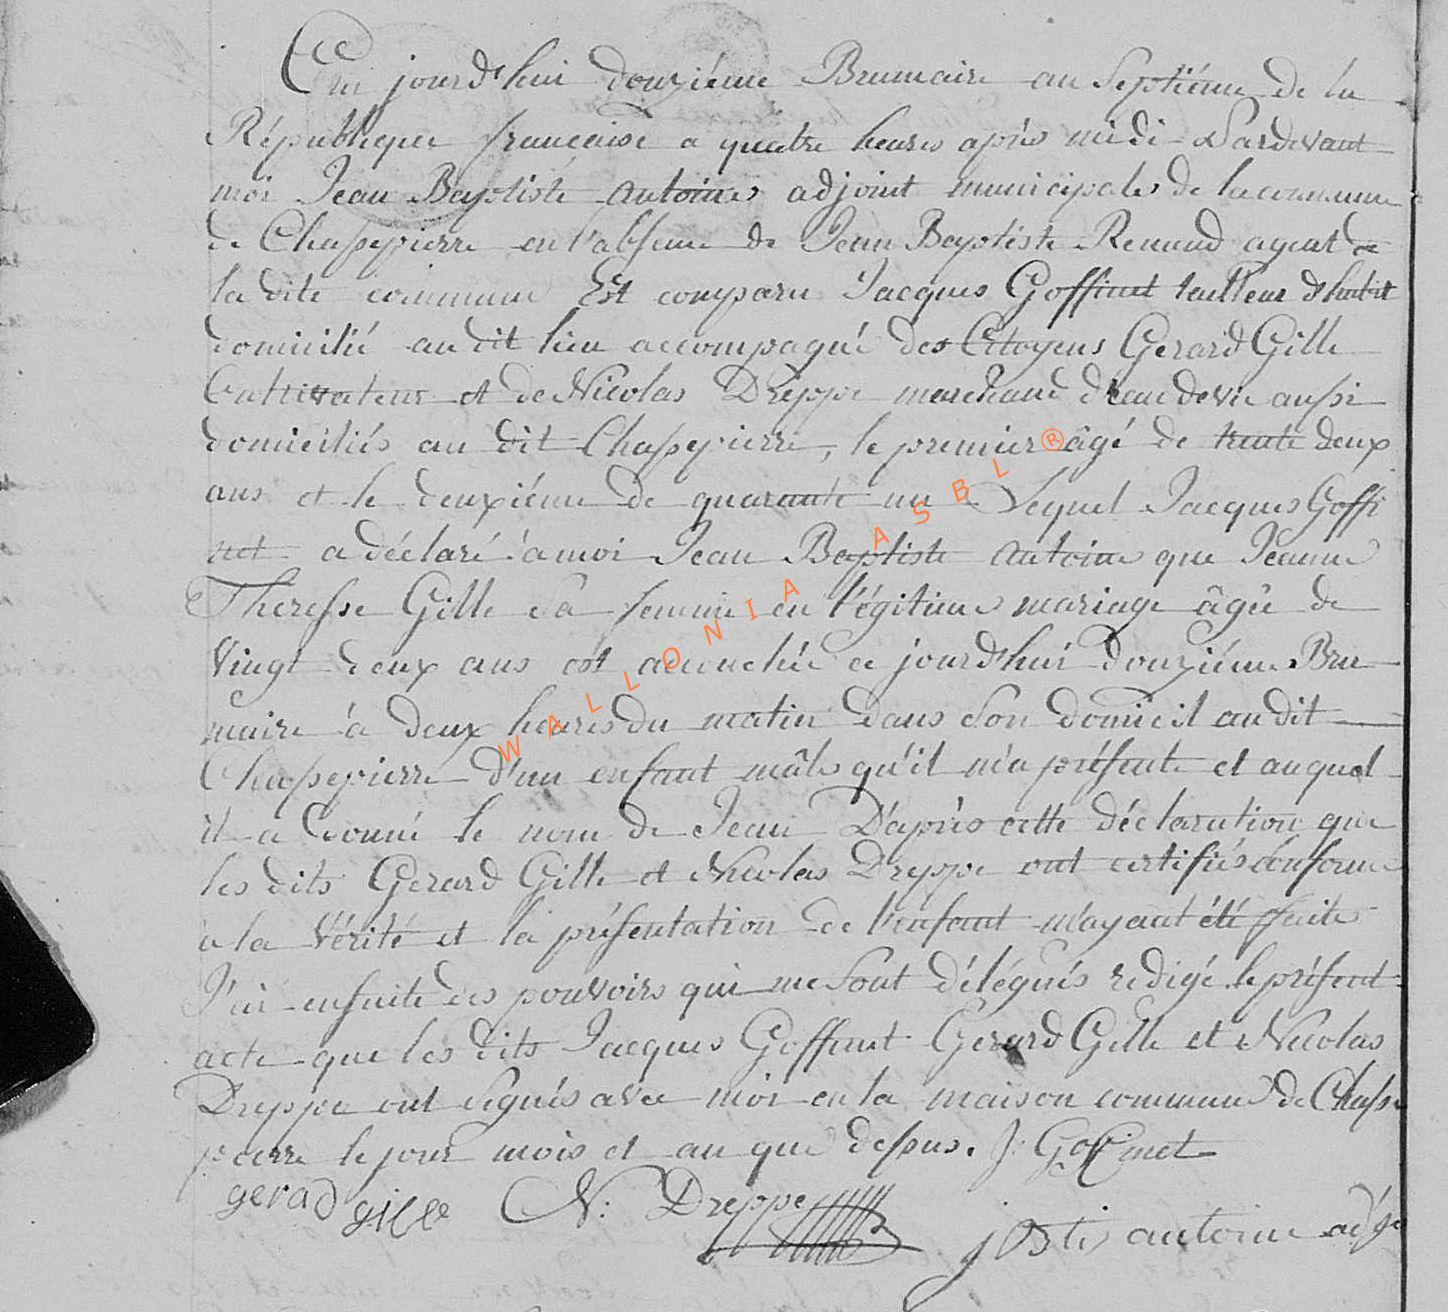 Cejourd'hui douziéme Brumaire an Septiéme de la
République francaise a quatre heures après midi Pardevant
moi Jean Baptiste antoine adjoint municipale de la commune
de Chassepierre en l'absence de Jean Baptiste Renaud agent de
la dite commune Est comparu Jacques Goffinet tailleur d'habit
domicilié au dit lieu accompagné des Citoyens Gerard Gille
Cultivateur et de Nicolas Dreppe marchand d'eau de vie aussi
domiciliés au dit Chassepierre, le premier âgé de trente deux
ans et le deuxiéme de quarante un Lequel Jacques Goffi
net a déclaré à moi Jean Baptiste antoine que Jeanne
Theresse Gille sa femme en légitime mariage âgée de
vingt deux ans est accouchée ce jourd'hui douziéme Bru
maire à deux heures du matin dans son domicil au dit
Chassepierre d'un enfant mâle qu'il m'a présenté et auquel
il a donné le nom de Jean D'après cette déclaration que
les dits Gerard Gille et Nicolas Dreppe ont certifiés conforme
a la vérité et la présentation de l'enfant m'ayant été faite
J'ai ensuite des pouvoirs qui me sont délégués redigé le présent
acte que les dits Jacques Goffinet Gerard Gille et Nicolas
Dreppe ont signés avec moi en la maison commune de Chasse
pierre le jour mois et an que dessus. J: Goffinet
gerad gille N: Dreppe jBti antoine adjt
WALLONIA ASBL ®